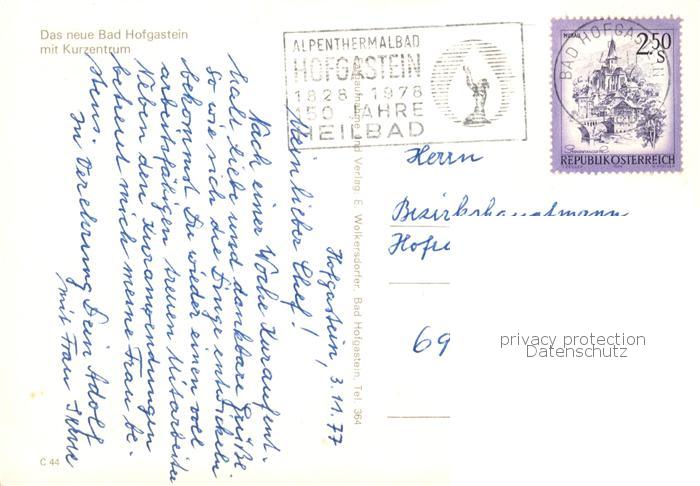 Das neue Bad Hofgastein
mit Kurzentrum
ALPENTHERMALBAD
HOFGASTEIN
1828 1978
150 JAHRE
HEILBAD
BAD HOFGASTEIN
MURAU
2.50
S
REPUBLIK ÖSTERREICH
Hofgastein, 3.11.77
Mein lieber Chef!
Nach einer Woche Kuraufent-
halt, liebe und dankbare Grüße
so wie sich die Dinge entwickeln
bekommst Du wieder einen voll
arbeitsfähigen treuen Mitarbeiter
Neben den Kuranwendungen
betreut mich meine Frau be-
stens.
In Verehrung Dein Adolf
mit Frau
Herrn
Bezirkshauptmann
69
privacy protection
Datenschutz
und Verlag E. Wolkersdorfer, Bad Hofgastein, Tel. 364
C 44